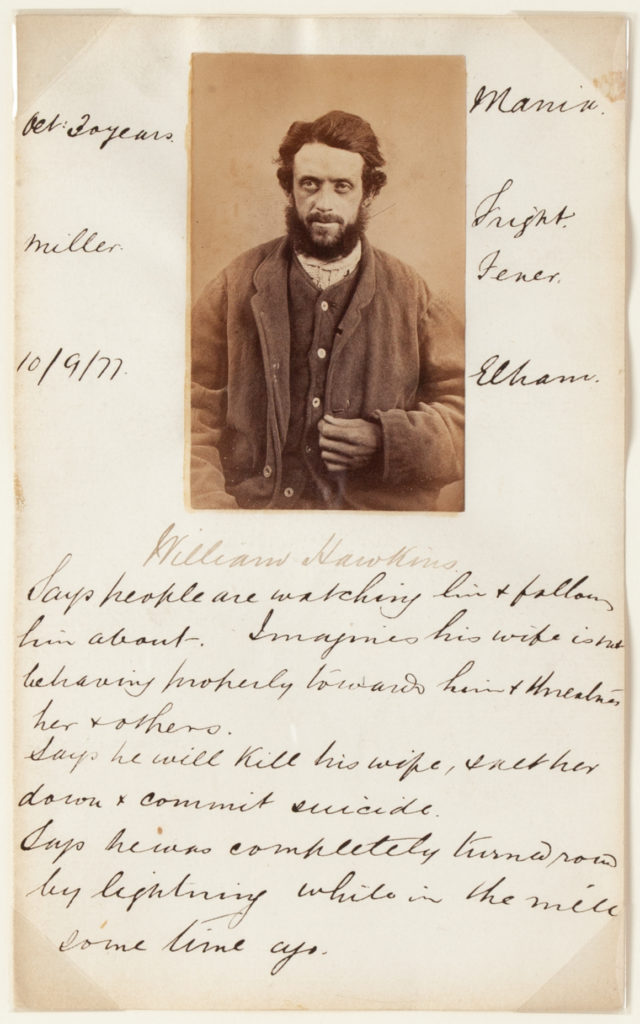 Aet: 30 years.
Miller.
10/9/77.
Mania.
Fright.
Fever.
Elham.
William Hawkins
Says people are watching him & follow
him about. Imagines his wife is not
behaving properly towards him & threatens
her & others.
Says he will kill his wife, & salt her
down & commit suicide.
Says he was completely turned round
by lightning while in the mill
some time ago.